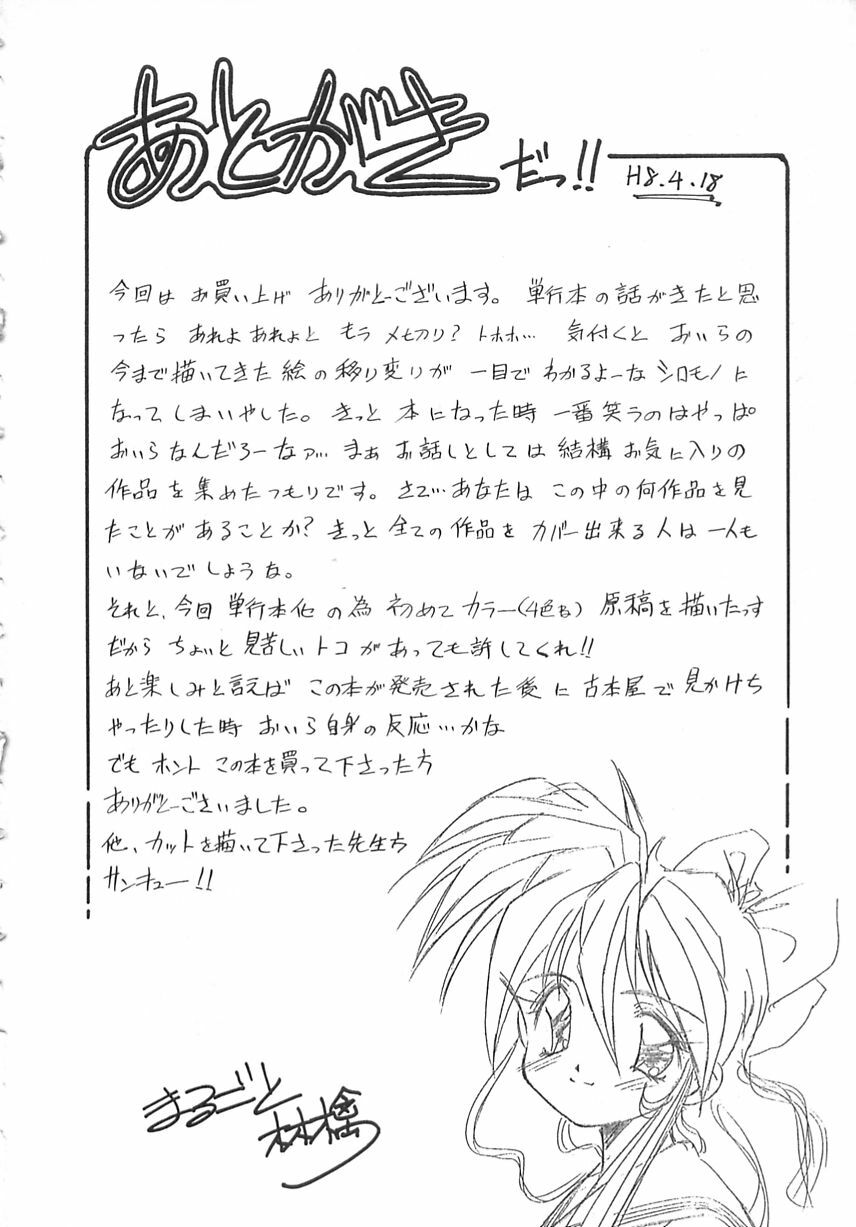 あとがきだっ!!
H8.4.18
今回は お買い上げ ありがとーございます。 単行本の話がきたと思
ったら あれよあれよと もう 〆切り? トホホ… 気付くと おいらの
今まで描いてきた 絵の移り変りが 一目で わかるよーな シロモノに
なって しまいやした。 きっと 本になった時 一番笑うのはやっぱ
おいらなんだろーなァ… まぁ お話しとしては 結構 お気に入りの
作品を 集めたつもりです。 さて…あなたは この中の何作品を見
たことが あることか? きっと 全ての作品を カバー出来る人は 一人も
いないでしょうな。
それと、今回 単行本化の為 初めて カラー(4色な) 原稿を描いたっす
だから ちょいと 見苦しい トコがあっても許してくれ!!
あと楽しみと言えば この本が発売された後に 古本屋で見かけち
ゃったりした時 おいら自身の反応…かな
でも ホント この本を買って下さった方
ありがとーございました。
他、カットを描いて下さった先生方
サンキュー!!
まるごと
林檎